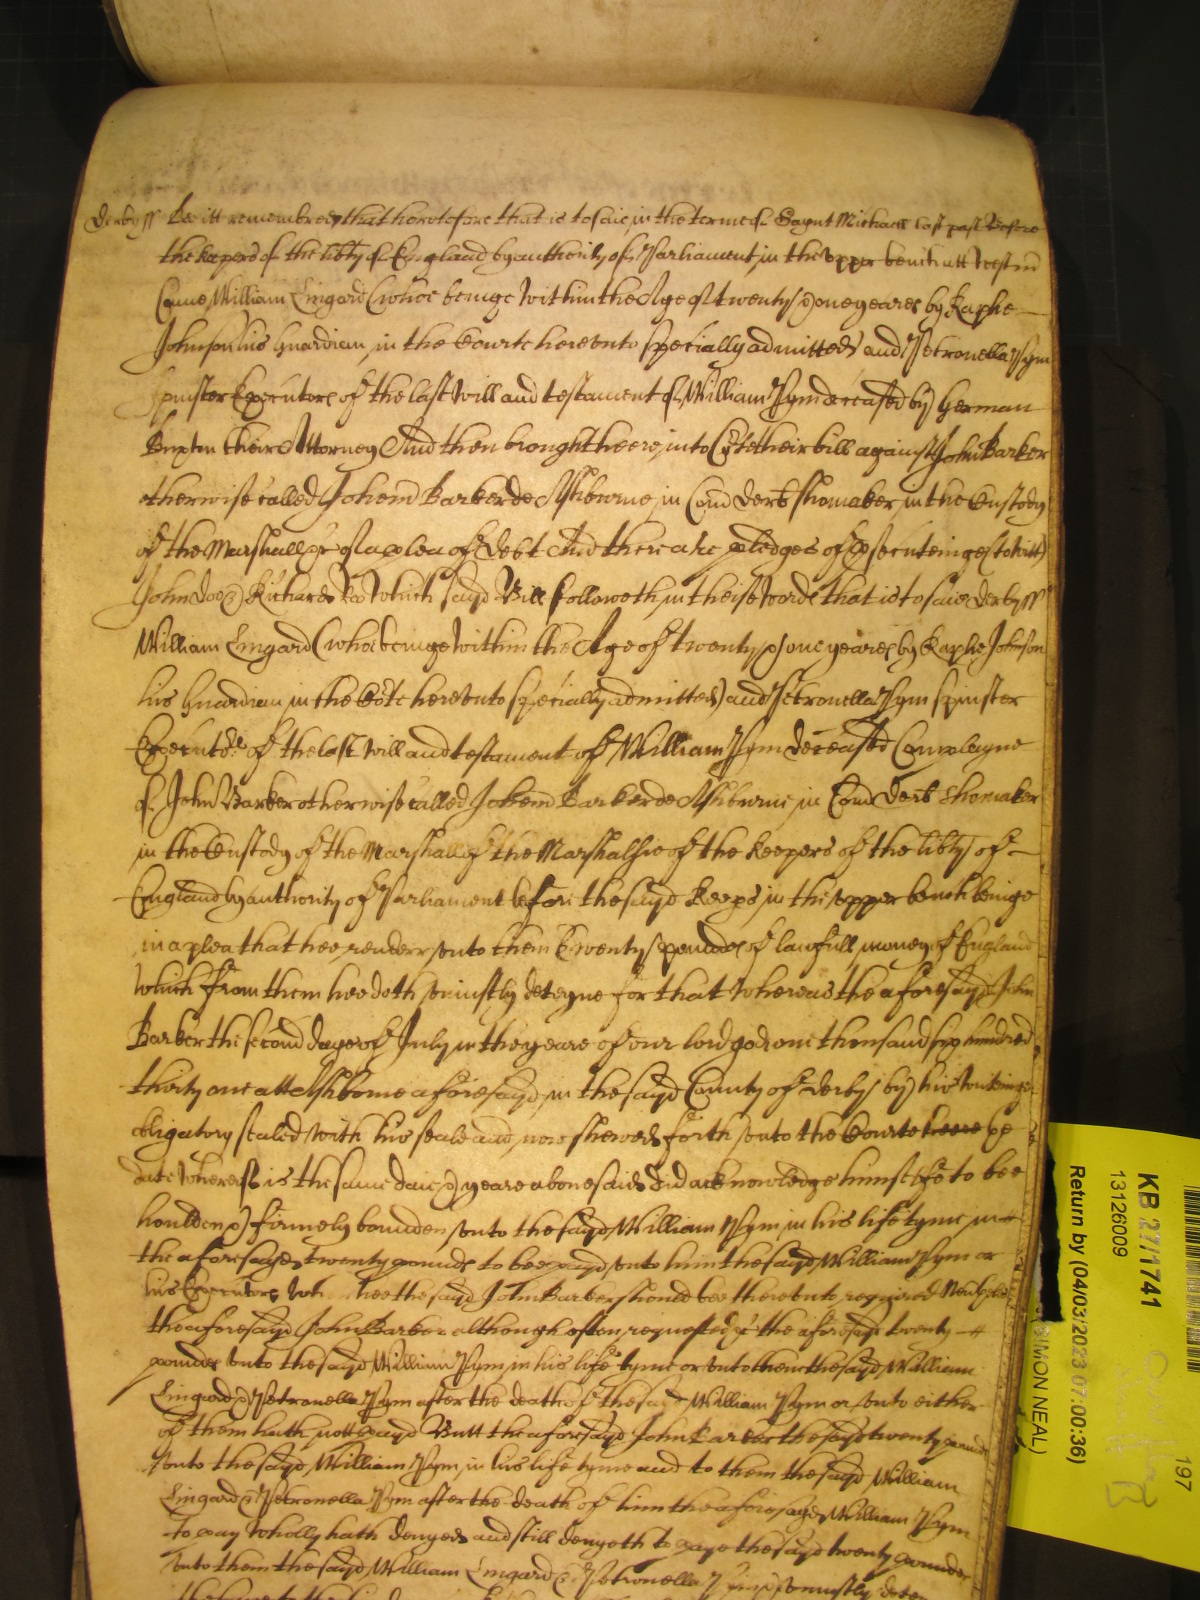 Derby ss Bee itt remembred that heretofore that is to saie in the terme of Saynt Michaell last past Before
the keepers of the lib[er]ty of England by authority of Parliament in the upper bench att Westm
Came William Lingard (whoe beinge within the Age of twenty & one yeares by Raphe
Johnson his Guardian in the Courte hereunto specially admitted) and Petronella Pym
spinster Executors of the last will and testament of William Pym deceased by German
their Attorney And then brought heere into Co[ur]te their bill against John Barker
otherwise called Johem Barker de Ashburne in Com Derb shomaker in the Custody
of the Marshall &c of a plea of debt And there are pledges of p[ro]secuteinge (to witt)
John Doo & Richard Roo Which sayd Bill followeth in theise words that is to saie Derby ss
William Lingard (whoe beinge within the Age of twenty & one yeares by Raphe Johnson
his Guardian in the Co[ur]te hereunto specially admitted) and Petronella Pym spinster
Executors of the last will and testament of William Pym deceased Complayne
of John Barker otherwise called Johem Barker de Ashburne in Com Derb shomaker
in the Custody of the Marshall of the Marshalsie of the keepers of the lib[er]ty of
England by authority of Parliament before the sayd keep[er]s in the upper bench beinge
in a plea that hee render unto them twenty pounds of lawfull money of England
which from them hee doth uniustly deteyne for that whereas the aforesayd John
Barker the second daye of July in the yeare of our lord god one thousand six hundred
thirty one att Ashborne aforesayd in the sayd County of Derby by his writinge
obligatory sealed with his seale and now shewed forth unto the Courte heere
date whereof is the same daie & yeare abovesaid did acknowledge himselfe to bee
houlden & firmely bounden unto the sayd William Pym in his life tyme in
the aforesayd twenty pounds to bee payd unto him the sayd William Pym or
his Executors hee the sayd John Barker should bee thereunto required
the aforesayd John Barker although often requested &c the aforesayd twenty
pounds unto the sayd William Pym in his life tyme or unto them the sayd William
Lingard & Petronella Pym after the death of the sayd William Pym or unto either
of them hath nott payd Butt the aforesayd John Barker the sayd twenty pounds
unto the sayd William Pym in his life tyme and to them the sayd William
Lingard & Petronella Pym after the death of him the aforesayd William Pym
to pay wholly hath denyed and still denyeth to paye the sayd twenty pounds
unto them the sayd William Lingard & Petronella Pym & uniustly
KB 27/1741
13126009
Return by (04/03/2023 07:00:36)
(SIMON NEAL)
197